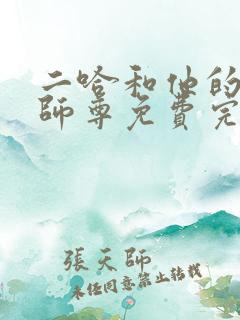 二哈和他的
師尊免費完
張天師
未經同意禁止轉載